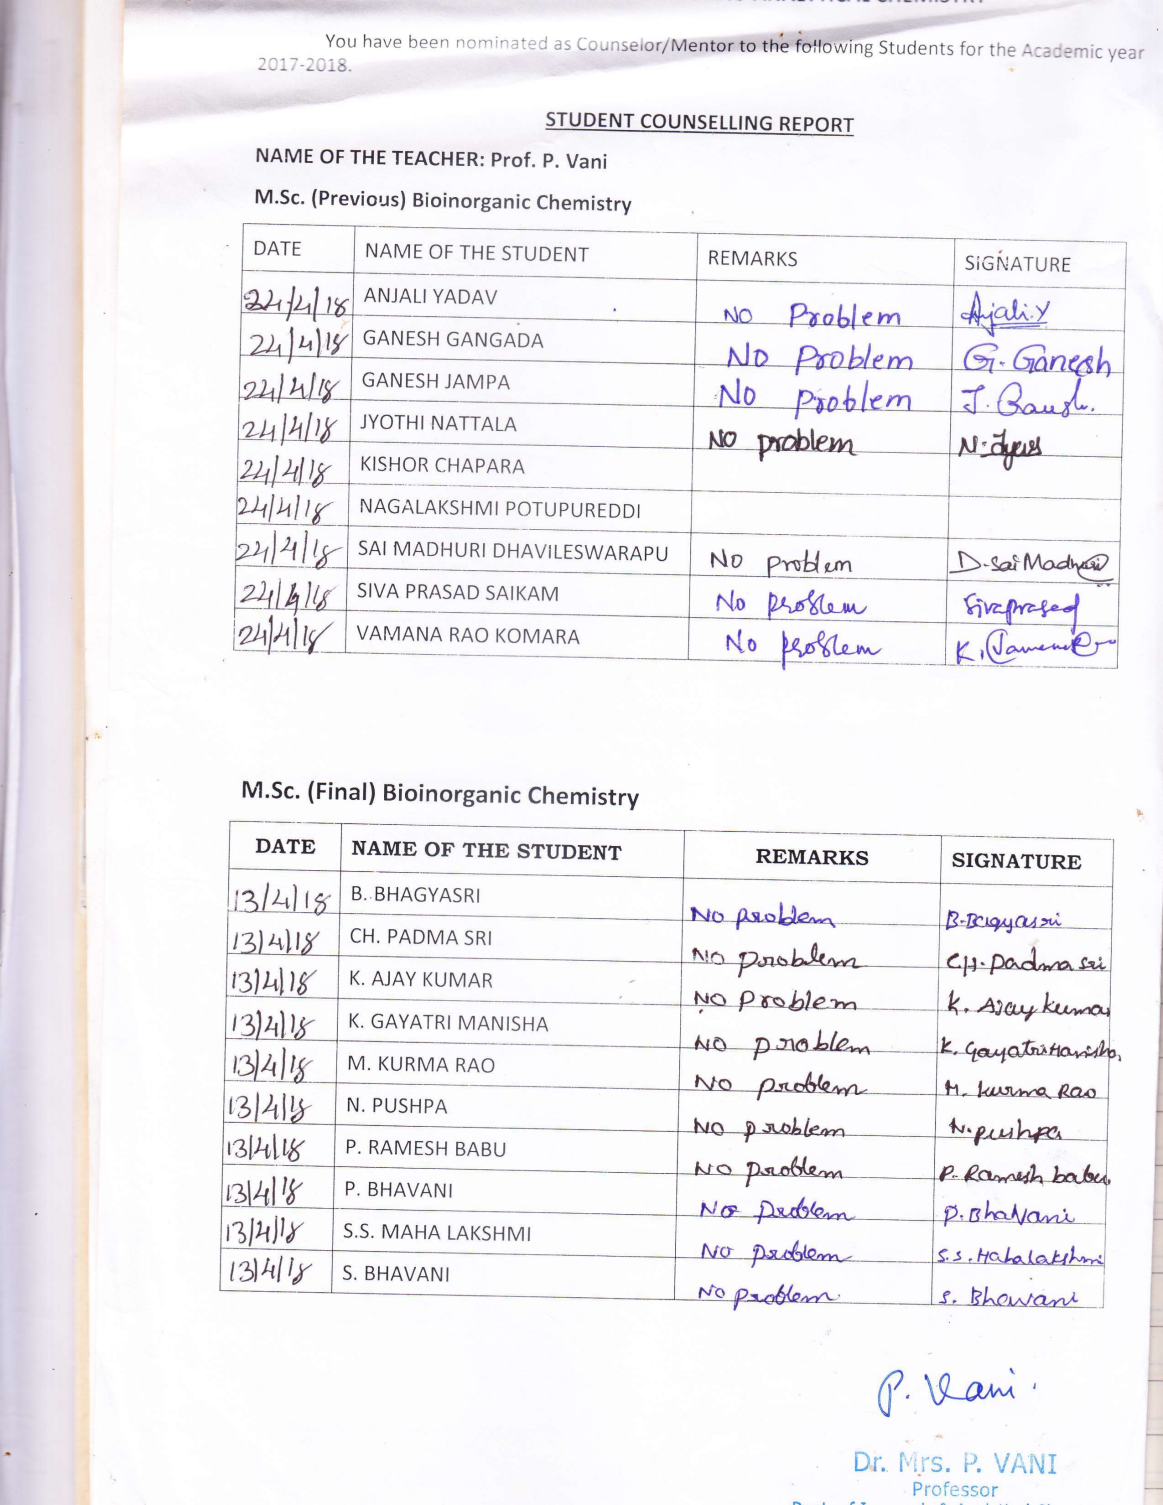 You have been nominated as Counselor/Mentor to the following Students for the Academic year
2017-2018.
STUDENT COUNSELLING REPORT
NAME OF THE TEACHER: Prof. P. Vani
M.Sc. (Previous) Bioinorganic Chemistry
DATE NAME OF THE STUDENT REMARKS SIGNATURE
24/4/18 ANJALI YADAV NO Problem Anjali.Y
24/4/18 GANESH GANGADA NO Problem G. Ganesh
24/4/18 GANESH JAMPA NO Problem J.
24/4/18 JYOTHI NATTALA NO problem N.
24/4/18 KISHOR CHAPARA
24/4/18 NAGALAKSHMI POTUPUREDDI
24/4/18 SAI MADHURI DHAVILESWARAPU NO problem D. Sai Madhuri
24/4/18 SIVA PRASAD SAIKAM No problem Sivaprasad
24/4/18 VAMANA RAO KOMARA No problem K.
M.Sc. (Final) Bioinorganic Chemistry
DATE NAME OF THE STUDENT REMARKS SIGNATURE
13/4/18 B. BHAGYASRI NO problem B.Bagyasri
13/4/18 CH. PADMA SRI NO problem CH. Padma sri
13/4/18 K. AJAY KUMAR NO problem K. Ajay kumar
13/4/18 K. GAYATRI MANISHA NO problem K. Gayatri Manisha.
13/4/18 M. KURMA RAO NO problem M. Kurma Rao
13/4/18 N. PUSHPA NO problem N. pushpa
13/4/18 P. RAMESH BABU NO problem P. Ramesh babu
13/4/18 P. BHAVANI NO problem P. Bhavani
13/4/18 S.S. MAHA LAKSHMI NO problem S.S. Mahalakshmi
13/4/18 S. BHAVANI NO problem. S. Bhavani
P. Vani.
Dr. Mrs. P. VANI
Professor